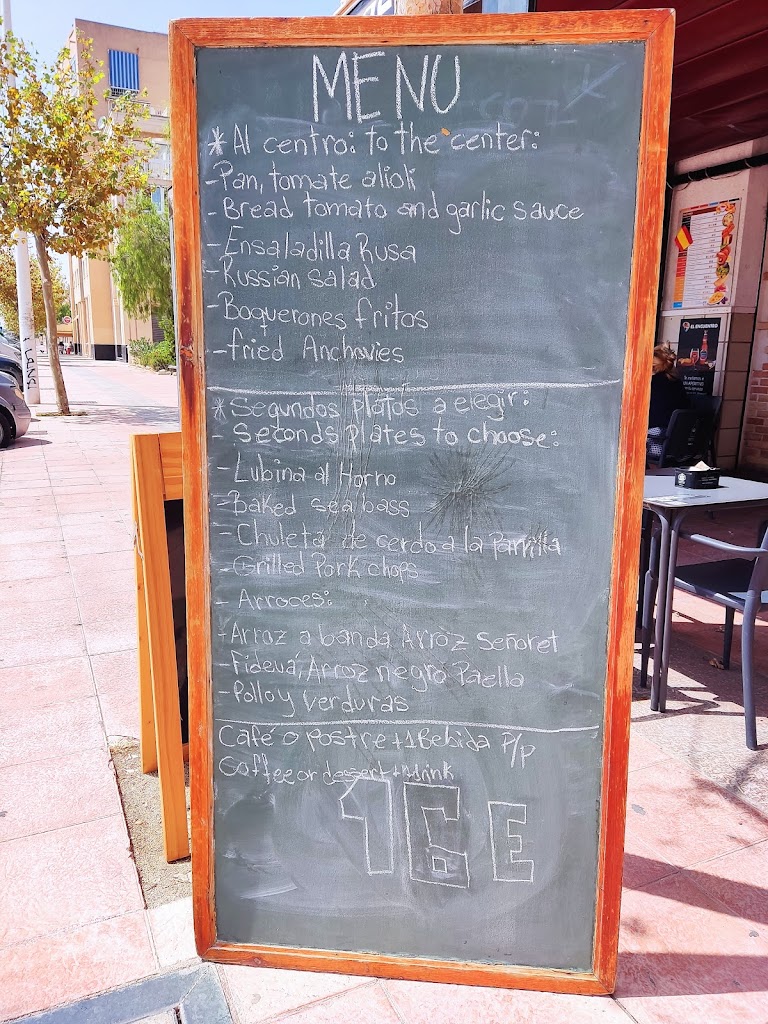 MENU
* Al centro: to the center:
- Pan, tomate alioli
- Bread tomato and garlic sauce
- Ensaladilla Rusa
- Russian salad
- Boquerones fritos
- fried Anchovies
* Segundos platos a elegir:
- Seconds plates to choose:
- Lubina al Horno
- Baked sea bass
- Chuleta de cerdo a la Parrilla
- Grilled Pork chops
- Arroces:
- Arroz a banda Arròz Señoret
- Fideuá, Arroz negro Paella
- Pollo y verduras
Café o Postre + 1 Bebida P/p
Coffee or dessert + 1 drink
16 E
EL ENCUENTRO